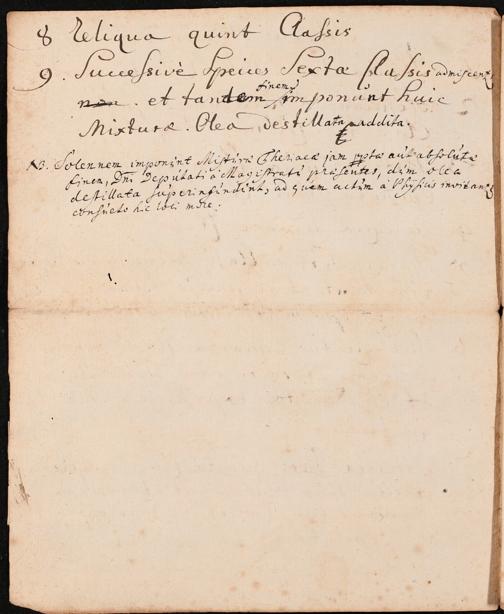 8 Reliqua quint Classis
9. Successivè Species Sextæ Classis admiscent
et tandem finem imponunt huic
Mixturæ. Olea destillata addita.
NB. Solennem imponunt Misturæ Theriacæ jam aut absolutæ
finem, Dni Deputati à Magistratu præsentes, dum olea
destillata superinfundunt, ad quem actum à Physicis invitantur
consueto hic loci more.